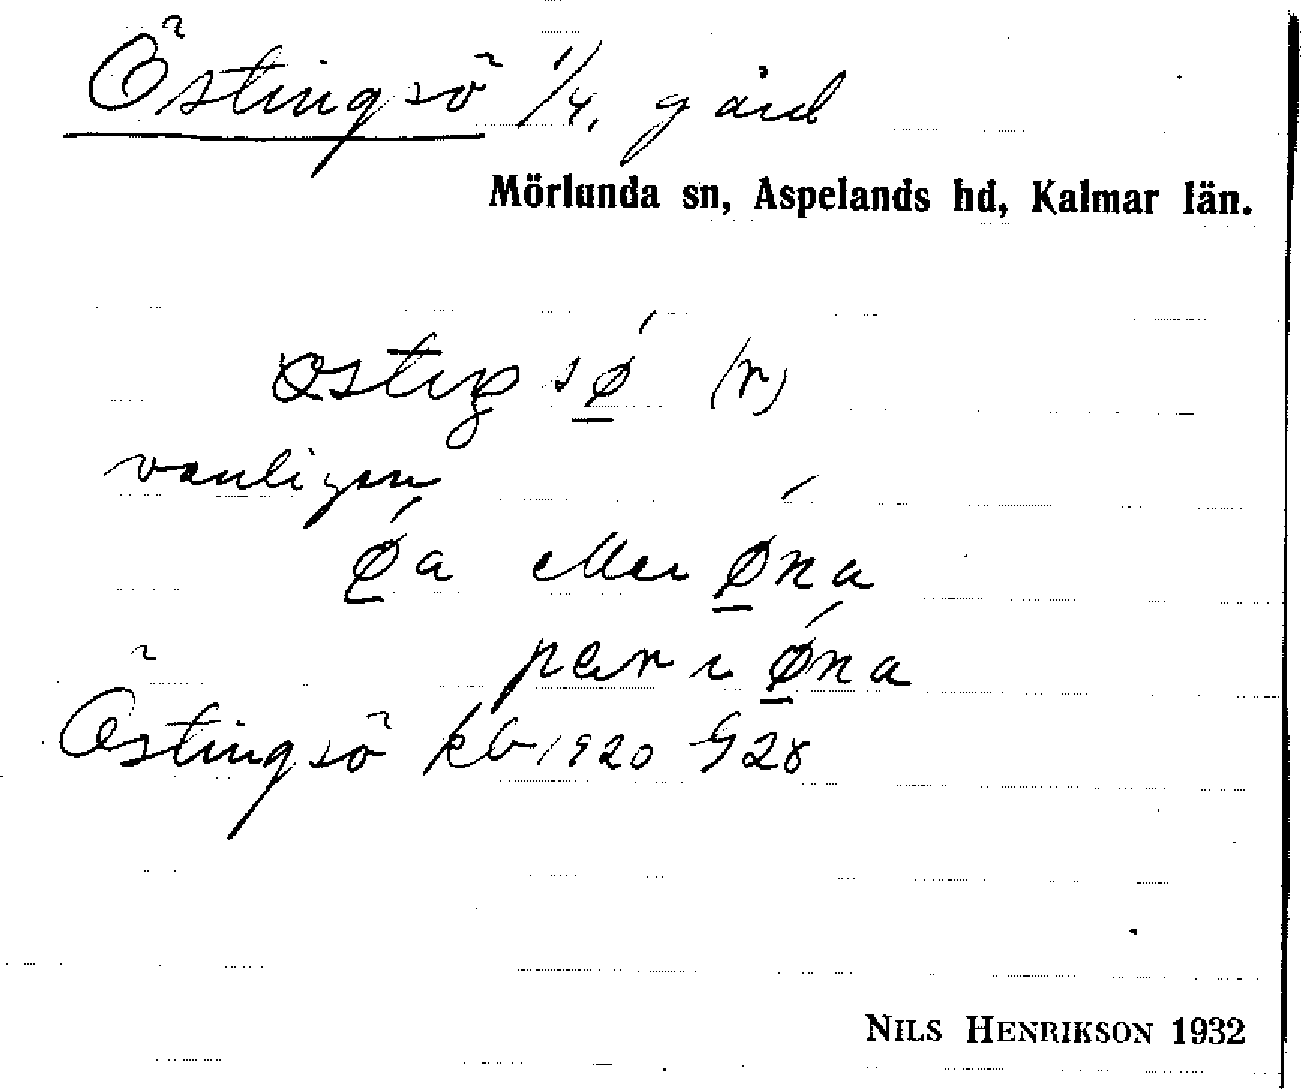 Östingsö 1/4, gård
Mörlunda sn, Aspelands hd, Kalmar län.
östiŋsǿ̱ (r)
vanligen
ǿ̱a eller ǿ̱na
pær i ǿ̱na
Östingsö kb 1920 G28
NILS HENRIKSON 1932